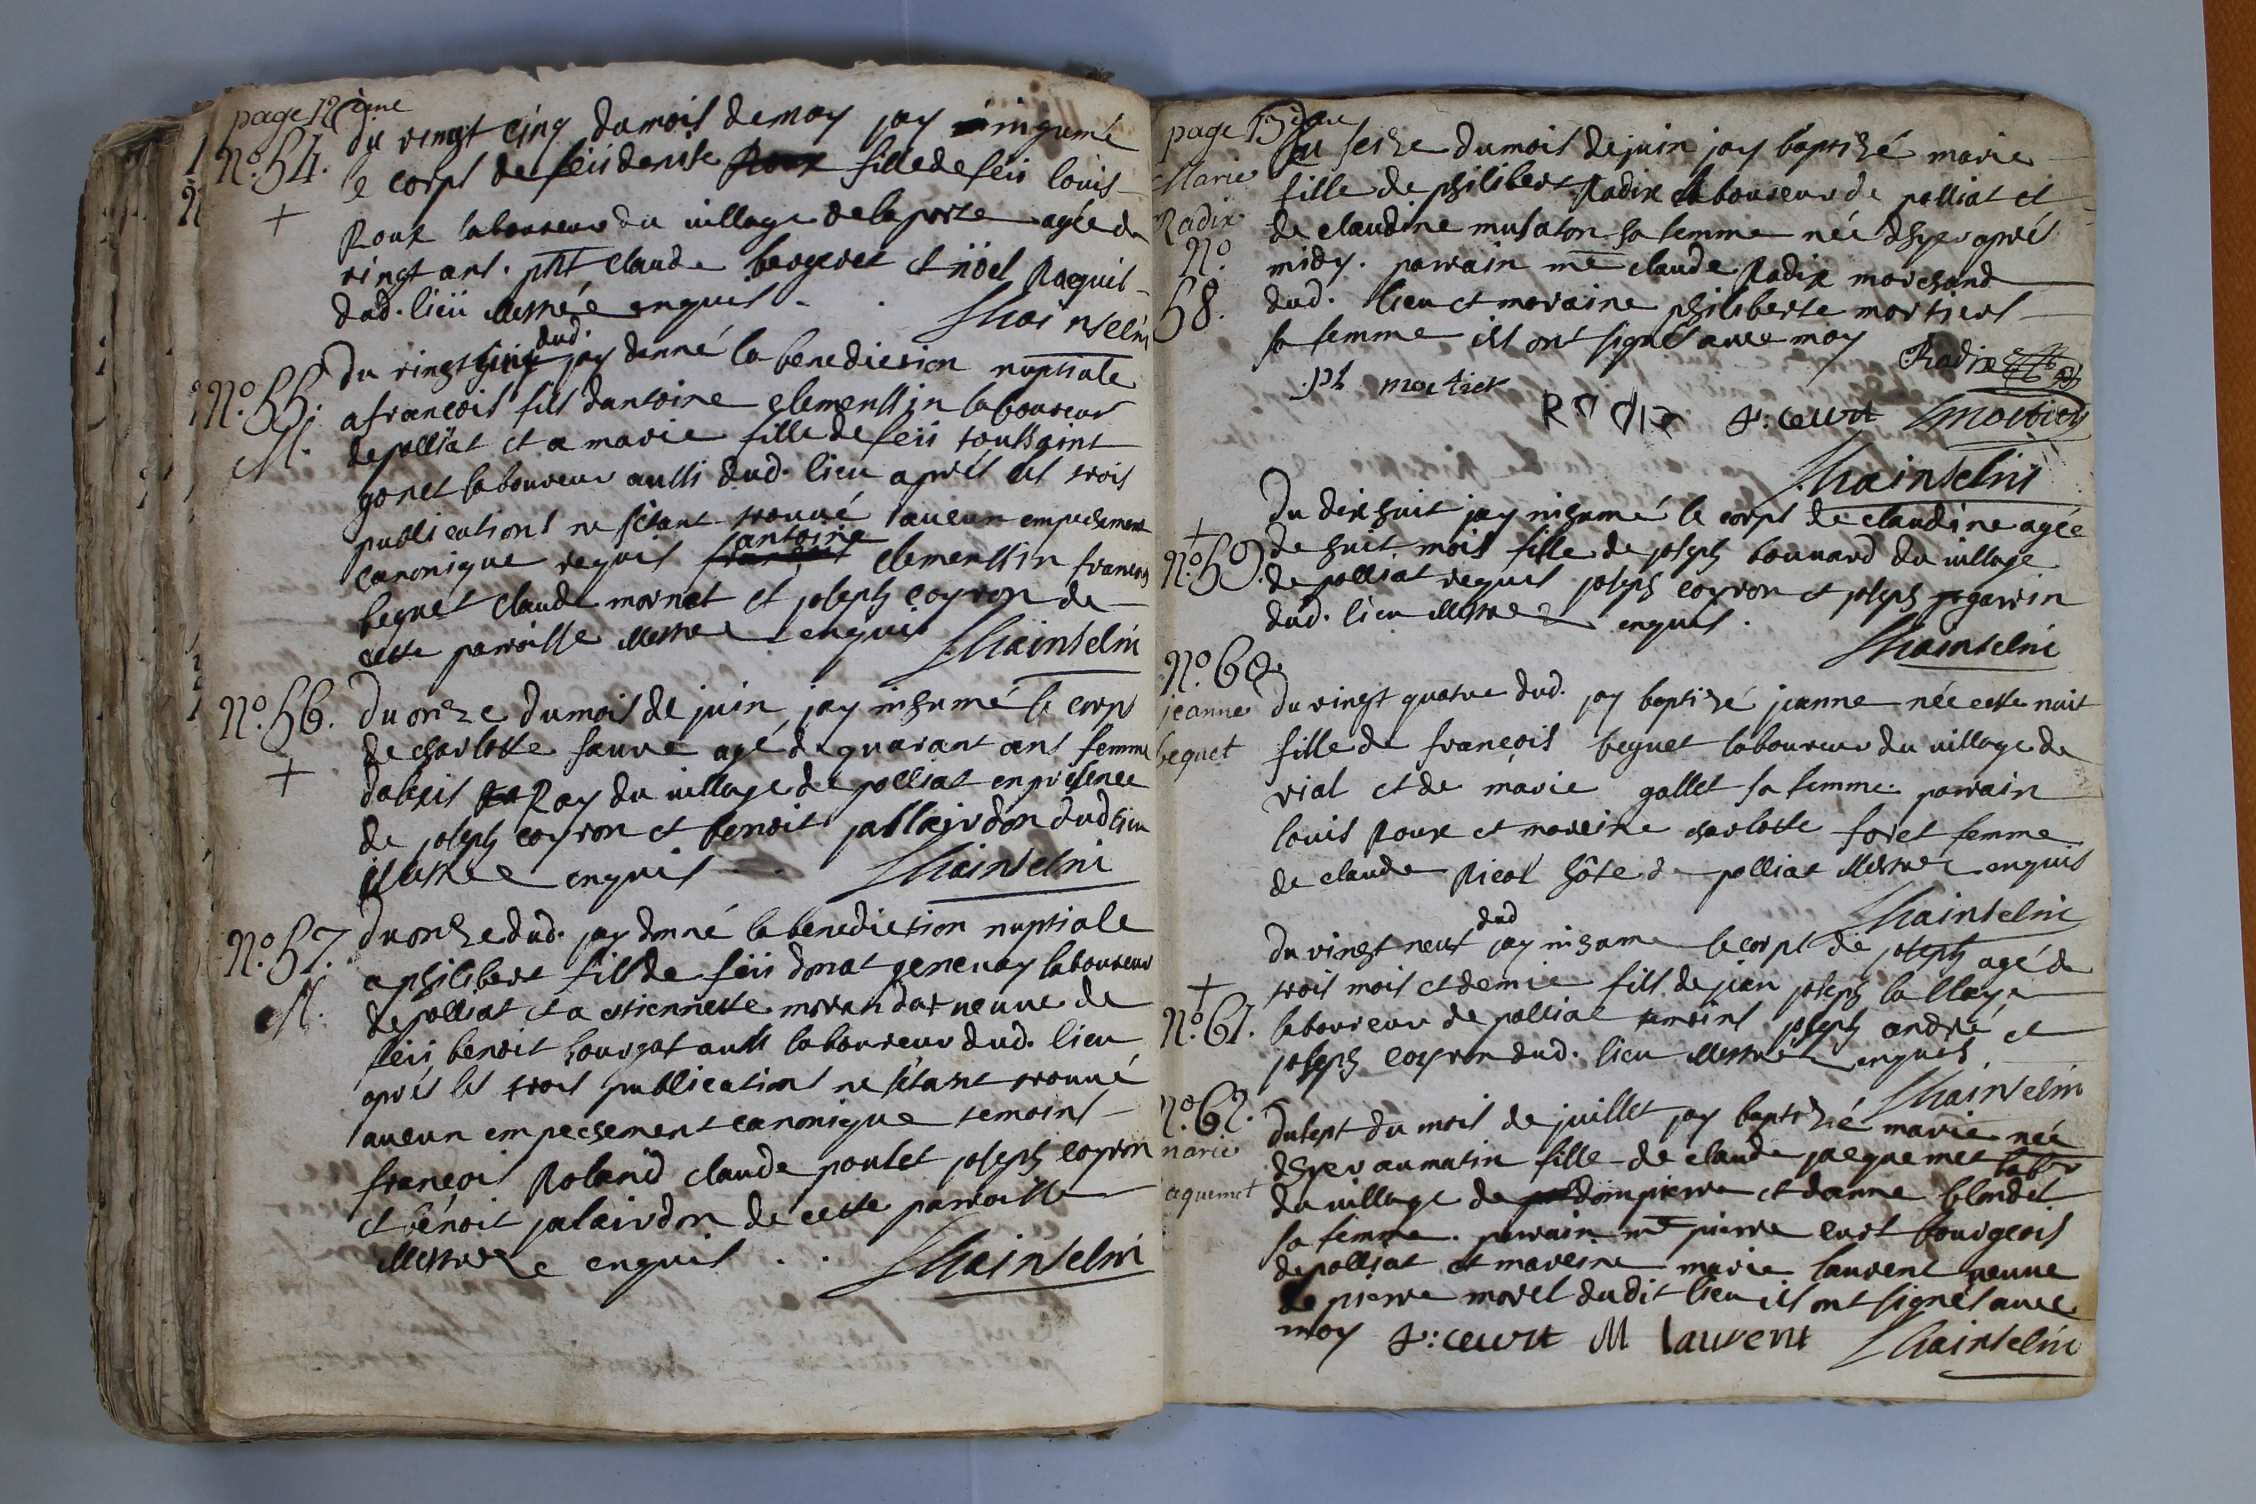 page 12 ieme
No. 54. du vingt cinq du mois de may jay inhumé
le corps de feii denise fille de feii louis
+
Roux laboureur du village de la poste agée de
vingt ans. pnt claude bergeret et nöel Raquis
dud. lieu illettrée enquis . .
Chainselin
No. 55. Du vingt cinq dud. jay donné la benediction nuptiale
M. a françois fils dantoine clemenssin laboureur
de polliat et a marie fille de feii toussaint
gonet laboureur aussi dud. lieu aprés les trois
publications ne sétant trouué aucun empechement
canonique requis antoine clemenssin françois
beguet claude mornet et joseph coyron de
cette parroisse illettrez enquis
Chainselin
No. 56. Du onze du mois de juin jay inhumé le corps
de charlotte faure agé de quarant ans femme
+
Ray du village de polliat en présence
de joseph coyron et benoit jallairdon dud lieu
enquis . .
Chainselin
No. 57. Du onze dud. jay donné la benediction nuptiale
M. a philibert fils de feii donat geneuay laboureur
de polliat et a estiennette morandat veuue de
feii benoit hourgat aussi laboureur dud. lieu
aprés les trois publications ne sétant trouué
aucun empechement canonique temoins
françois Roland claude poulet joseph coyron
et bénoit jalairdon de cette parroisse
enquis . .
Chainselin
page 13 ieme
Du seize du mois de juin jay baptizé marie
Marie
fille de philibert Radix laboureur de polliat et
Radix
de claudine musaton sa femme née dhyer aprés
No
midy. parrain me claude Radix marchand
58.
dud. lieu et maraine philiberte mortier
sa femme ils ont signés auec moy
Radix
ph mortier
RADIX P: cewrt mortier
Chainselin
Du dix huit jay inhumé le corps de claudine agée
+
No. 59. de huit mois fille de joseph bouuard du village
de polliat requis joseph coyron et joseph garrin
dud. lieu illettrez enquis.
Chainselin
No. 60.
jeanne Du vingt quatre dud. jay baptizé jeanne née cette nuit
bequet fille de françois beguet laboureur du village de
vial et de márie gallet sa femme parrain
louis Roux et mareine charlotte foret femme
de claude Picot hôte de polliat illettrez enquis
Chainselin
Du vingt neuf dud jay inhumé le corps de joseph agé de
+
trois mois et demie fils de jean joseph
No. 61. laboureur de polliat temoins joseph andré et
joseph coyron dud. lieu illettrez enquis
Chainselin
No. 62. Du sept du mois de juillet jay baptizée marie née
marie dhyer au matin fille de claude jacquemet labr
jaquemet du village de dompierre et danne blondel
sa femme. parrain me pierre curt bourgeois
de polliat et mareine marie laurent veuue
de pierre morel dudit lieu ils ont signés auec
moy P: cewrt M laurent Chainselin